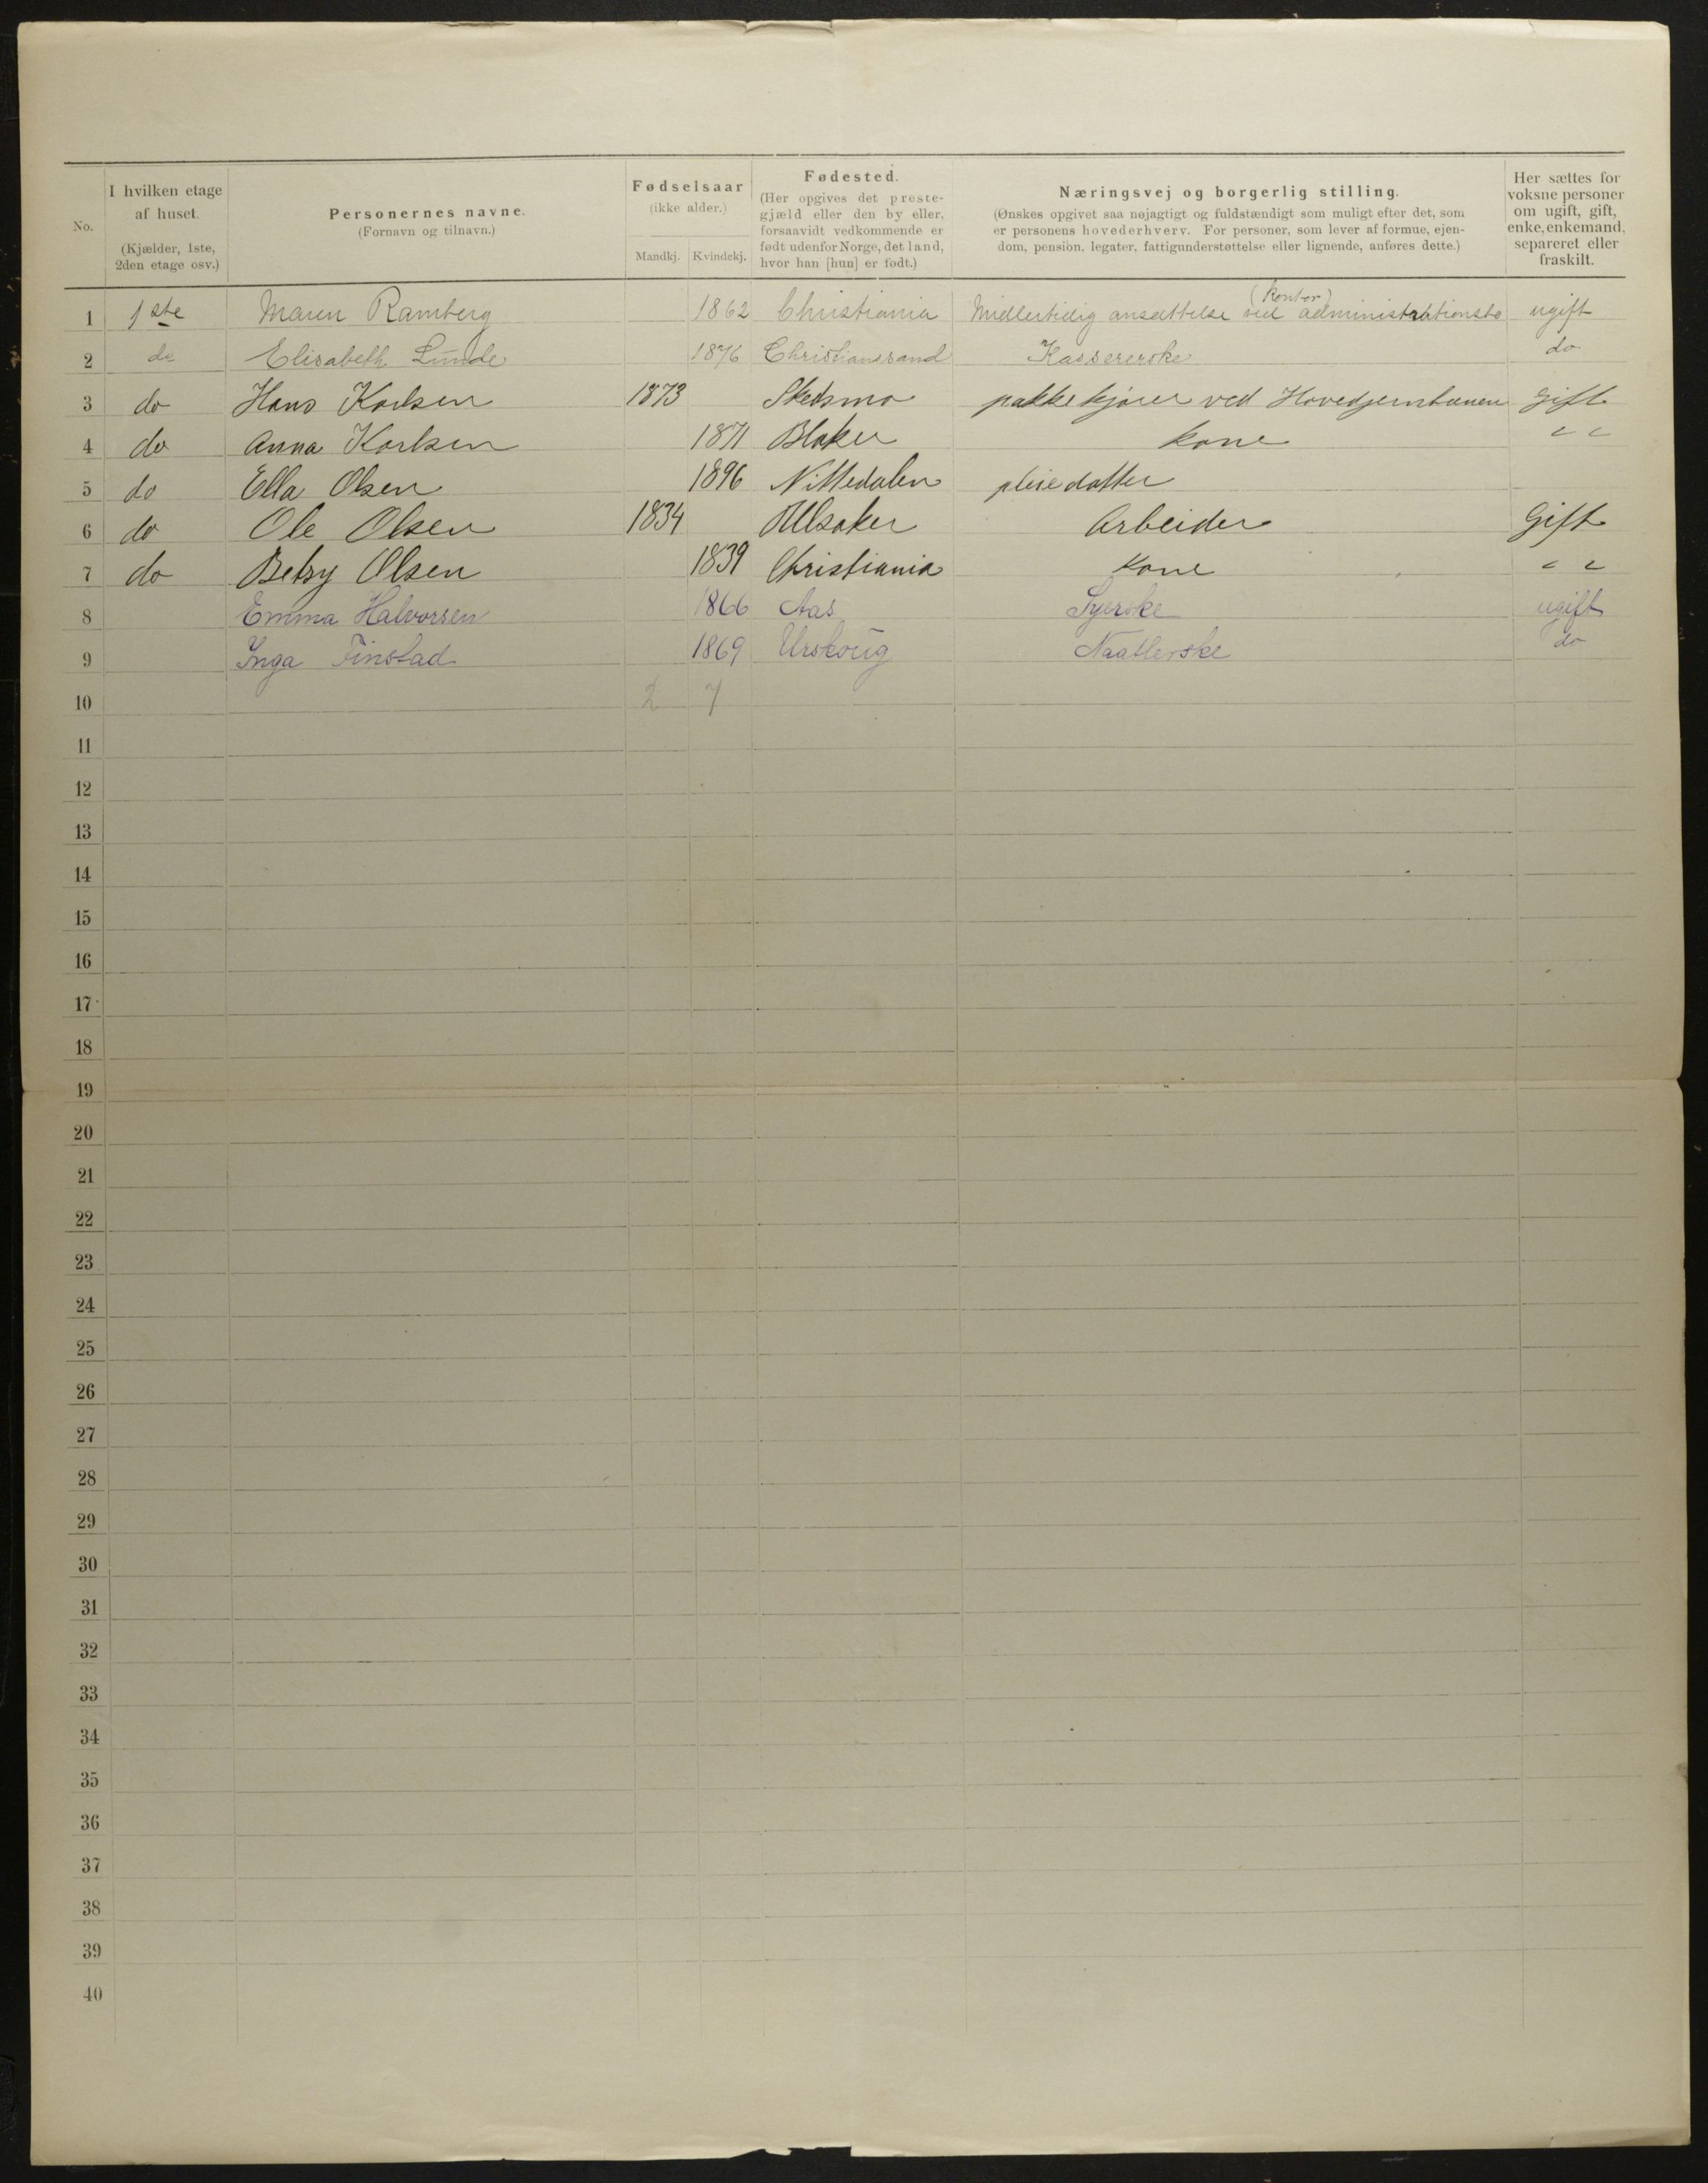 No.
I hvilken etage
af huset.
(Kjælder, 1ste,
2den etage osv.)
Personernes navne.
(Fornavn og tilnavn.)
Fødselsaar
(ikke alder.)
Mandkj. Kvindekj.
Fødested.
(Her opgives det preste-
gjæld eller den by eller,
forsaavidt vedkommende er
født udenfor Norge, det land,
hvor han [hun] er født.)
Næringsvej og borgerlig stilling.
(Ønskes opgivet saa nøjagtigt og fuldstændigt som muligt efter det, som
er personens hovederhverv. For personer, som lever af formue, ejen-
dom, pension, legater, fattigunderstøttelse eller lignende, anføres dette.)
Her sættes for
voksne personer
om ugift, gift,
enke, enkemand,
separeret eller
fraskilt.
(Kontor)
1 1ste Maren Ramberg 1862 Christiania Midlertidig ansættelse ved administrationsto ugift
2 do Elisabeth Lunde 1876 Christianssand Kassererske do
3 do Hans Karlsen 1873 Skedsmo pakkekjører ved Hovedjernbanen Gift
4 do Anna Karlsen 1871 Blaker kone " "
5 do Ella Olsen 1896 Nittedalen pleiedatter
6 do Ole Olsen 1834 Ullsaker Arbeider Gift
7 do Betsy Olsen 1839 Christiania Kone " "
8 Emma Halvorsen 1866 Aas Syerske ugift
9 Inga Finstad 1869 Urskoug Naatlerske do
10 2 7
11
12
13
14
15
16
17
18
19
20
21
22
23
24
25
26
27
28
29
30
31
32
33
34
35
36
37
38
39
40